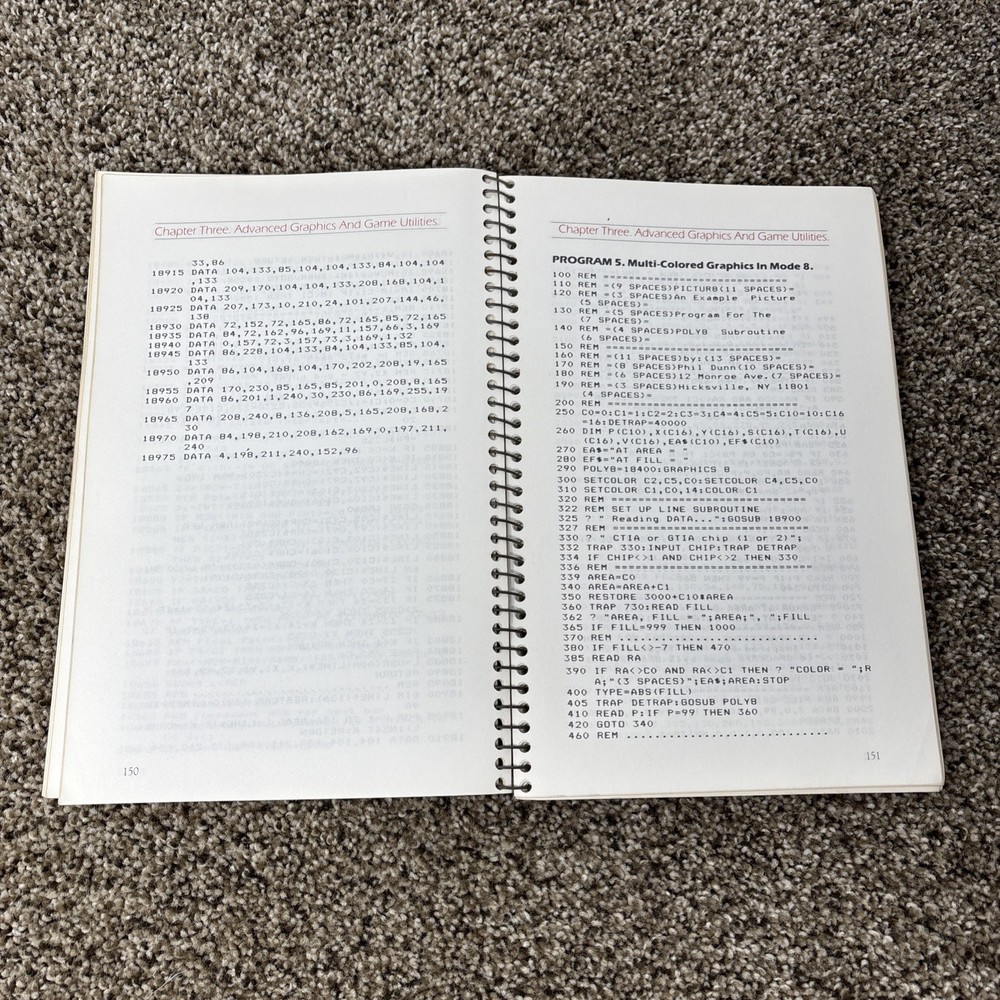 Chapter Three. Advanced Graphics And Game Utilities.
33,86
18915 DATA 104,133,85,104,104,133,84,104,104
,133
18920 DATA 209,170,104,104,133,208,168,104,1
04,133
18925 DATA 207,173,10,210,24,101,207,144,46,
138
18930 DATA 72,152,72,165,86,72,165,85,72,165
18935 DATA 84,72,162,96,169,11,157,66,3,169
18940 DATA 0,157,72,3,157,73,3,169,1,32
18945 DATA 86,228,104,133,84,104,133,85,104,
133
18950 DATA 86,104,168,104,170,202,208,19,165
,209
18955 DATA 170,230,85,165,85,201,0,208,8,165
18960 DATA 86,201,1,240,30,230,86,169,255,19
7
18965 DATA 208,240,8,136,208,5,165,208,168,2
30
18970 DATA 84,198,210,208,162,169,0,197,211,
240
18975 DATA 4,198,211,240,152,96
150
Chapter Three. Advanced Graphics And Game Utilities.
PROGRAM 5. Multi-Colored Graphics In Mode 8.
100 REM ==========================
110 REM =(9 SPACES)PICTUR8(11 SPACES)=
120 REM =(3 SPACES)An Example  Picture
(5 SPACES)=
130 REM =(5 SPACES)Program For The
(7 SPACES)=
140 REM =(4 SPACES)POLY8  Subroutine
(6 SPACES)=
150 REM ===========================
160 REM =(11 SPACES)by:(13 SPACES)=
170 REM =(8 SPACES)Phil Dunn(10 SPACES)=
180 REM =(6 SPACES)12 Monroe Ave.(7 SPACES)=
190 REM =(3 SPACES)Hicksville, NY 11801
(4 SPACES)=
200 REM ===========================
250 C0=0:C1=1:C2=2:C3=3:C4=4:C5=5:C10=10:C16
=16:DETRAP=40000
260 DIM P(C10),X(C16),Y(C16),S(C16),T(C16),U
(C16),V(C16),EA$(C10),EF$(C10)
270 EA$="AT AREA = "
280 EF$="AT FILL = "
290 POLY8=18400:GRAPHICS 8
300 SETCOLOR C2,C5,C0:SETCOLOR C4,C5,C0
310 SETCOLOR C1,C0,14:COLOR C1
320 REM ============================
322 REM SET UP LINE SUBROUTINE
325 ? " Reading DATA...":GOSUB 18900
327 REM ============================
330 ? " CTIA or GTIA chip (1 or 2)";
332 TRAP 330:INPUT CHIP:TRAP DETRAP
334 IF CHIP<>1 AND CHIP<>2 THEN 330
336 REM ============================
339 AREA=C0
340 AREA=AREA+C1
350 RESTORE 3000+C10*AREA
360 TRAP 730:READ FILL
362 ? "AREA, FILL = ";AREA;", ";FILL
365 IF FILL=999 THEN 1000
370 REM ............................
380 IF FILL<>-7 THEN 470
385 READ RA
390 IF RA<>C0 AND RA<>C1 THEN ? "COLOR = ";R
A;"(3 SPACES)";EA$;AREA:STOP
400 TYPE=ABS(FILL)
405 TRAP DETRAP:GOSUB POLY8
410 READ P:IF P=99 THEN 360
420 GOTO 340
460 REM .............................
151